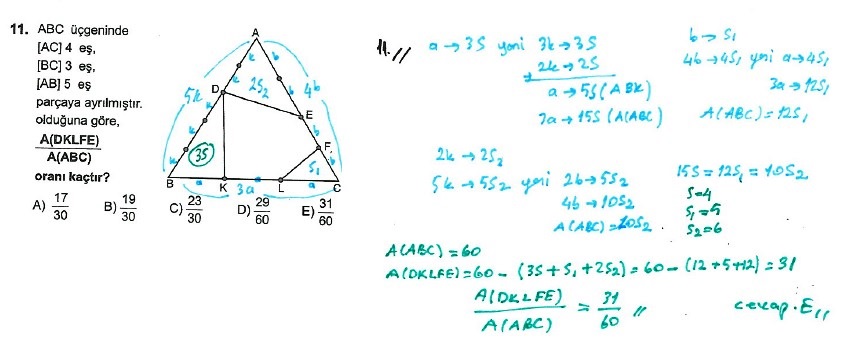 11. ABC üçgeninde
[AC] 4 eş,
[BC] 3 eş,
[AB] 5 eş
parçaya ayrılmıştır.
olduğuna göre,
A(DKLFE)
A(ABC)
oranı kaçtır?
A) 17/30 B) 19/30 C) 23/30 D) 29/60 E) 31/60
A
k b
k 2S₂ b
D
5k 4b
k E
k b
F
k 3S S₁ b
B a K 3a L a C
11.//
a→3S yani 3k→3S
2k→2S
a→5S (ABK)
3a→15S (A(ABC)
b→S₁
4b→4S₁ yani a→4S₁
3a→12S₁
A(ABC)=12S₁
2k→2S₂
5k→5S₂ yani 2b→5S₂
4b→10S₂
A(ABC)=10S₂
15S=12S₁=10S₂
S=4
S₁=5
S₂=6
A(ABC)=60
A(DKLFE)=60-(3S+S₁+2S₂)=60-(12+5+12)=31
A(DKLFE)/A(ABC) = 31/60 //
cevap.E//